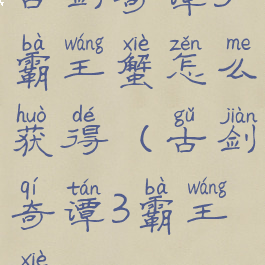 古剑奇谭3
bà wáng xiè zěn me
霸王蟹怎么
huò dé gǔ jiàn
获得(古剑
qí tán bà wáng
奇谭3霸王
xiè